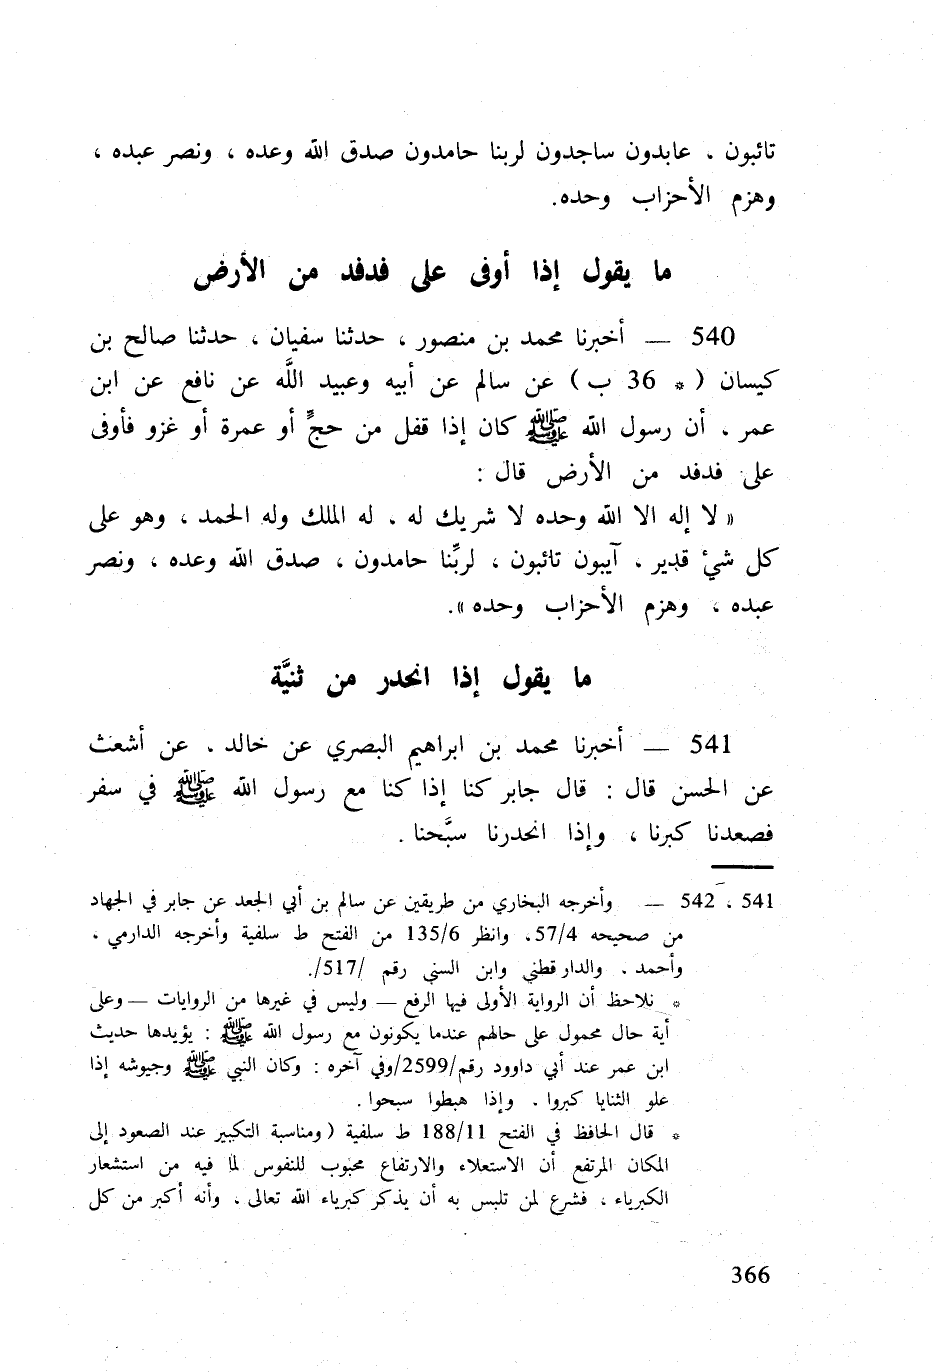 تائبون . عابدون ساجدون لربنا حامدون صدق الله وعده ، ونصر عبده ،
وهزم الأحزاب وحده.
ما يقول إذا أوفى على فدفد من الأرض
540 — أخبرنا محمد بن منصور ، حدثنا سفيان ، حدثنا صالح بن
كيسان ( * 36 ب ) عن سالم عن أبيه وعبيد اللَّه عن نافع عن ابن
عمر . أن رسول الله ﷺ كان إذا قفل من حجٍّ أو عمرة أو غزو فأوفى
على فدفد من الأرض قال :
« لا إله الا الله وحده لا شريك له . له الملك وله الحمد ، وهو على
كل شيءٍ قدير . آيبون تائبون ، لربِّنا حامدون ، صدق الله وعده ، ونصر
عبده ، وهزم الأحزاب وحده ».
ما يقول إذا انحدر من ثنيَّة
541 — أخبرنا محمد بن ابراهيم البصري عن خالد . عن أشعث
عن الحسن قال : قال جابر كنا إذا كنا مع رسول الله ﷺ في سفر
فصعدنا كبرنا ، وإذا انحدرنا سبَّحنا .
541 ، 542 — وأخرجه البخاري من طريقين عن سالم بن أبي الجعد عن جابر في الجهاد
من صحيحه 57/4. وانظر 135/6 من الفتح ط سلفية وأخرجه الدارمي ،
وأحمد . والدارقطني وابن السني رقم /517/.
* نلاحظ أن الرواية الأولى فيها الرفع — وليس في غيرها من الروايات — وعلى
أية حال محمول على حالهم عندما يكونون مع رسول الله ﷺ : يؤيدها حديث
ابن عمر عند أبي داوود رقم/2599/وفي آخره : وكان النبي ﷺ وجيوشه إذا
علو الثنايا كبروا . وإذا هبطوا سبحوا .
* قال الحافظ في الفتح 188/11 ط سلفية ( ومناسبة التكبير عند الصعود إلى
المكان المرتفع أن الاستعلاء والارتفاع محبوب للنفوس لما فيه من استشعار
الكبرياء ، فشرع لمن تلبس به أن يذكر كبرياء الله تعالى ، وأنه أكبر من كل
366